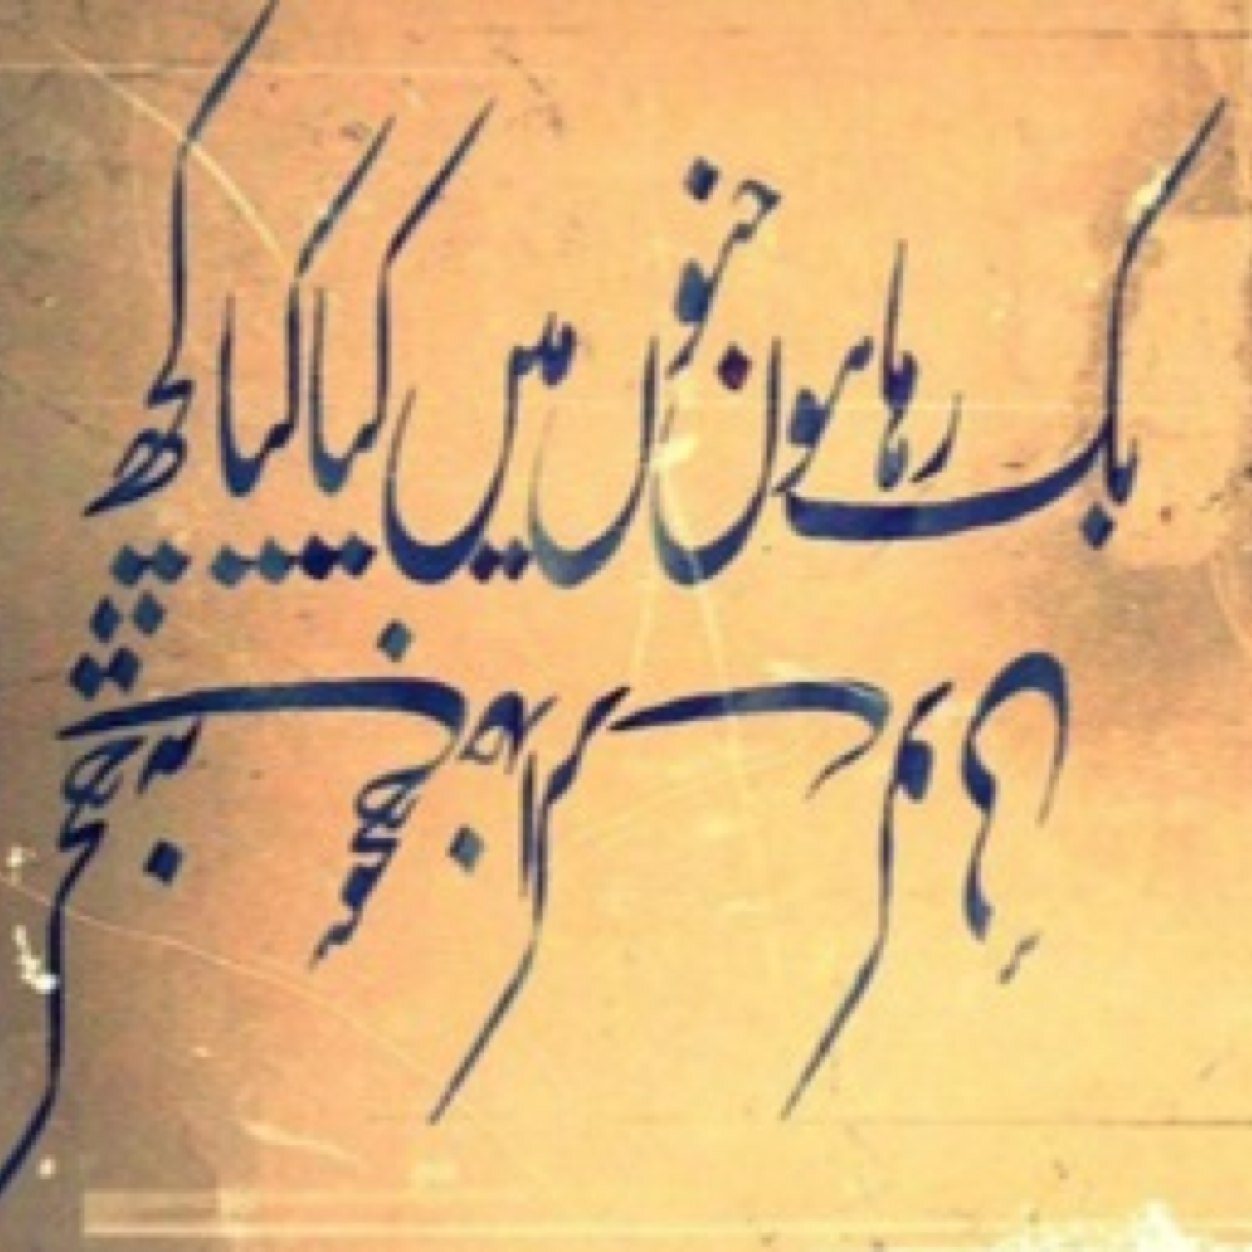 بک رہا ہوں جنوں میں کیا کیا کچھ
کچھ نہ سمجھے خدا کرے کوئی